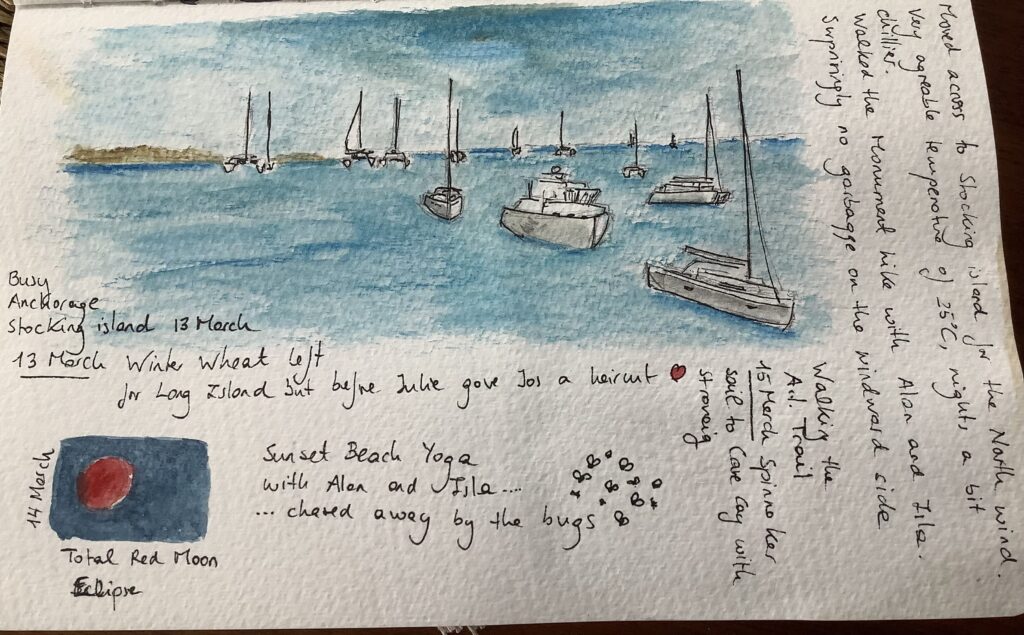 Busy
Anchorage
Stocking island 13 March
13 March Winter Wheat left
for Long Island but before Julie gave Jos a haircut
14 March
Total Red Moon
Eclipse
Sunset Beach Yoga
with Alan and Isla....
... chared away by the bugs
Moved across to Stocking island for the North wind.
Very agreable temperature of 25°C, nights a bit
chillier.
Walked the Monument hike with Alan and Isla.
Surprisingly no garbagge on the windward side
Walking the
Art. Trail
15 March Spinnaker
sail to Cave Cay with